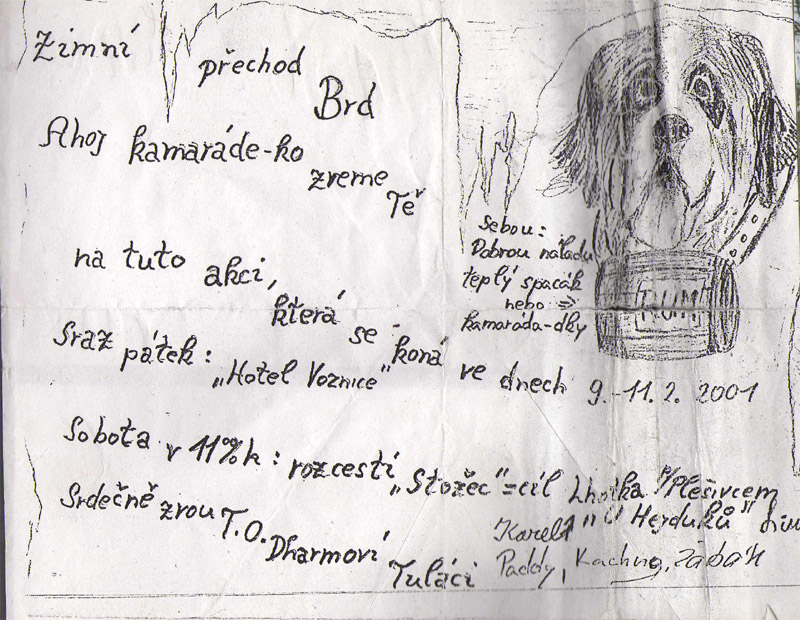 Zimní přechod Brd
Ahoj kamaráde-ko zveme Tě
na tuto akci, která se koná ve dnech 9.-11.2. 2001
Sraz pátek: „Hotel Voznice"
Sobota v 11⁰⁰h: rozcestí „Stožec"=cíl Lhotka p/Plešivcem
„U Hejduků"
Srdečně zvou T.O. Dharmoví Tuláci
Karel
Paddy, Kachna, Žabák
Sebou:
Dobrou náladu
teplý spacák
nebo ⇒
kamaráda-dky
RUM